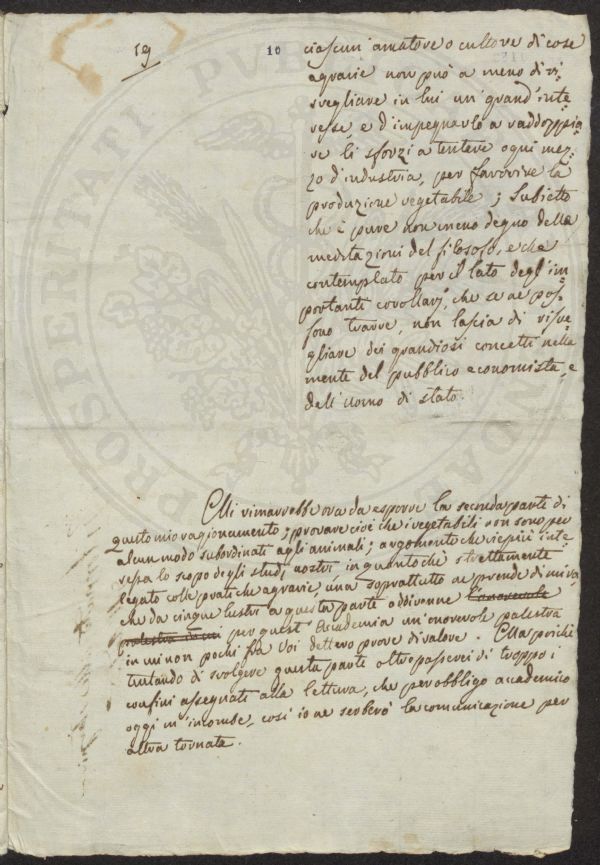 19
10
ciascun amatore o cultore di cose
agrarie non può a meno di ri-
svegliare in lui un grand'inte-
resse, e d'impegnarlo a raddoppia-
re li sforzi a tentere ogni mez-
zo d'industria, per favorire la
produzione vegetabile; Subietto
che è pure non meno degno della
meditazioni del filosofo, e che
contemplato per il lato degl'im-
portanti corollarj, che se ne pos-
sono trarre, non lascia di risve-
gliare dei grandiosi concetti nella
mente del pubblico economista, e
dell'Uomo di stato.
Mi rimarrebbe ora da esporre la seconda parte di
questo mio ragionamento; provare cioè che i vegetabili non sono per
alcun modo subordinati agli animali; argomento che
lo scopo degli studj nostri, in quanto che strettamente
legato colle pratiche agrarie, una soprattutto ne prende di mira
che da cinque lustri a questa parte addivenne l'onorevole
palestra per quest'Accademia un'onorevole palestra
in cui non pochi fra Voi dettero prove di valore. Ma poichè
tentando di svolgere questa parte oltrepasserei di troppo i
confini assegnati alla lettura, che per obbligo accademico
oggi m'incombe, così io ne serberò la comunicazione per
altra tornata.
PROSPERITATI PUBLICAE